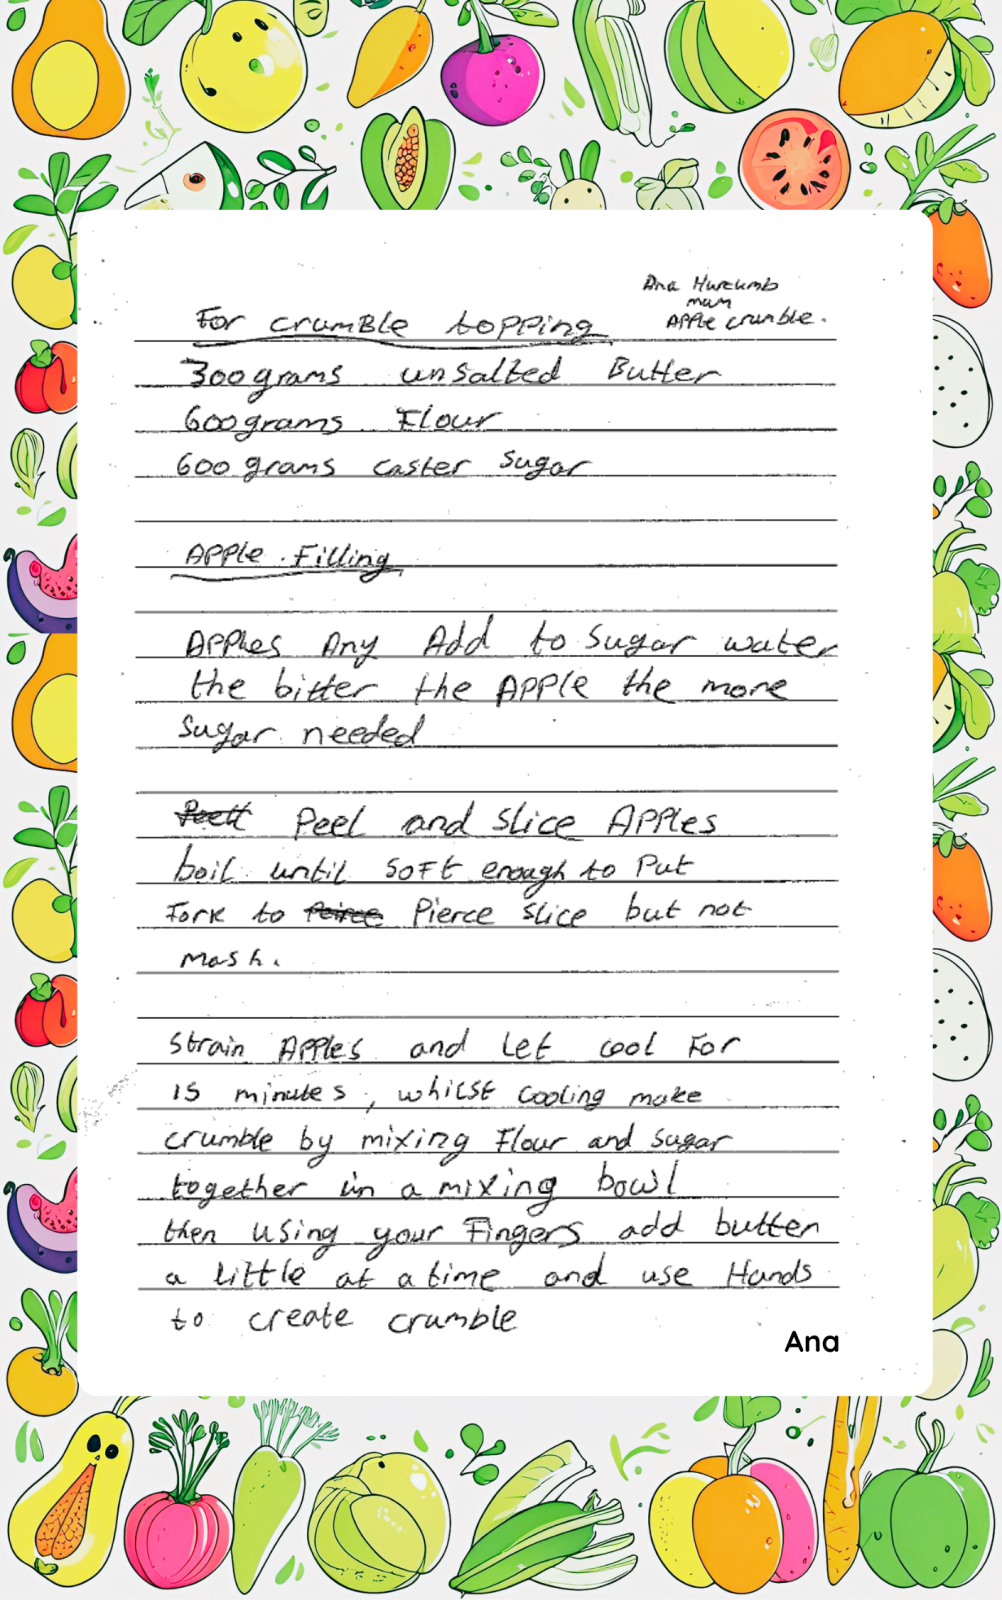 Ana Huccumb
mum
APPle crumble.
For crumBle topping
300grams unsalted Butter
600grams Flour
600 grams caster Sugar
APPle Filling
APPles Any Add to Sugar water
the bitter the APPle the more
Sugar needed
Peel and Slice APPles
boil until SOFt enough to Put
Fork to Pierce Slice but not
mash.
Strain APPles and let cool For
15 minutes, whilst cooling make
crumble by mixing Flour and Sugar
together in a mixing bowl
then using your Fingers add butter
a little at a time and use Hands
to create crumble
Ana